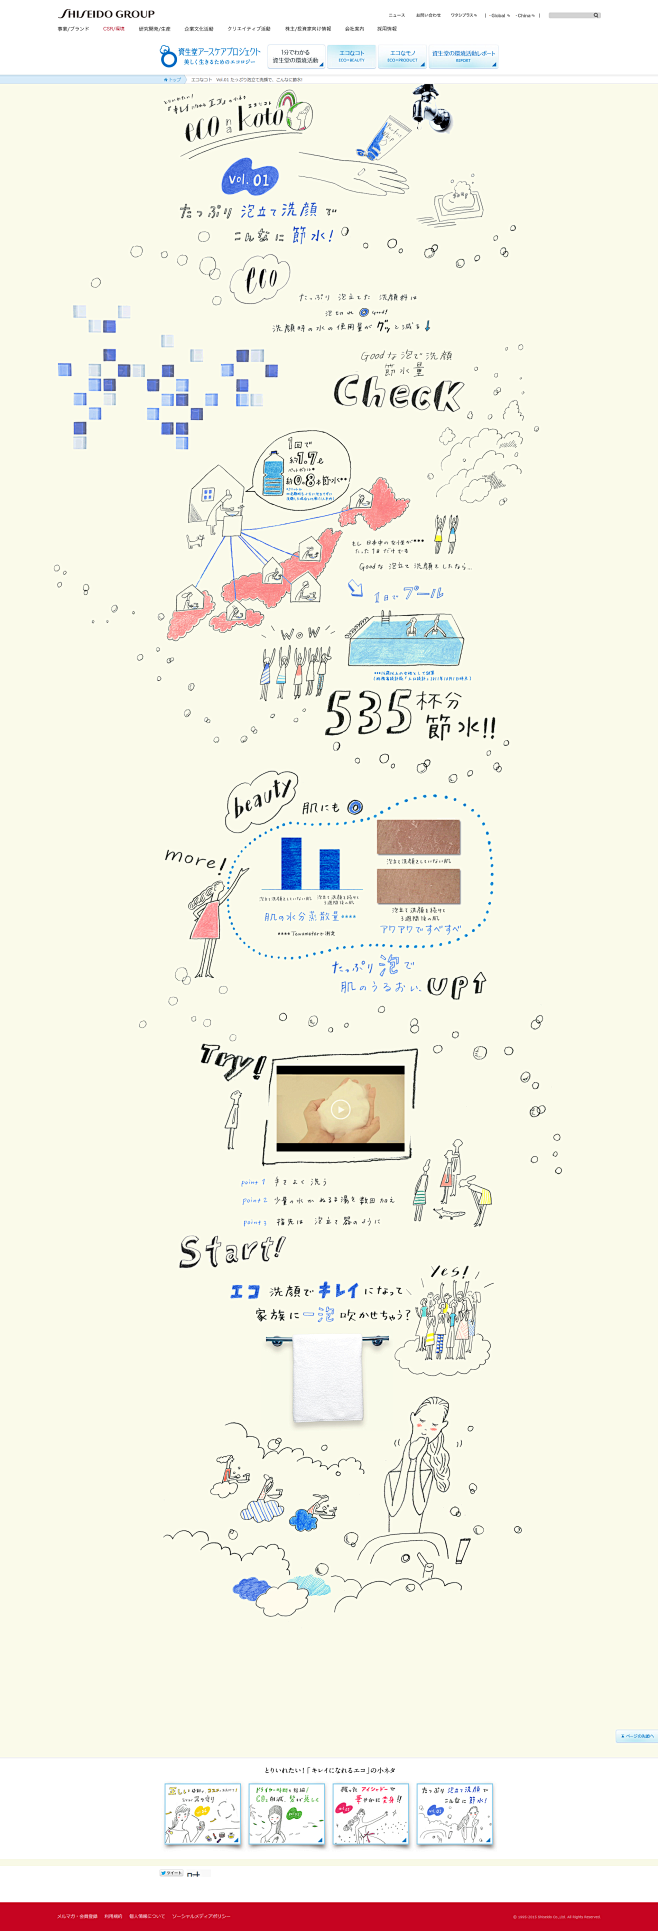 SHISEIDO GROUP
ニュース
お問い合わせ
ワタシプラスへ
Global
China
事業/ブランド
CSR/環境
研究開発/生産
企業文化活動
クリエイティブ活動
株主/投資家向け情報
会社案内
採用情報
資生堂アースケアプロジェクト
美しく生きるためのエコロジー
1分でわかる
資生堂の環境活動
エコなコト
ECO×BEAUTY
エコなモノ
ECO×PRODUCT
資生堂の環境活動レポート
REPORT
トップ
エコなコト Vol.01 たっぷり泡立て洗顔で、こんなに節水!
eco na koto
vol. 01
たっぷり 泡立て洗顔で
こんなに 節水!
eco
たっぷり 泡立てた 洗顔料は
泡切れ Good!
洗顔時の水の使用量が グッと減る
Goodな泡で洗顔
節水量
Check
1回で
約1.7ℓ
ペットボトル
約0.8本
もし 日本中の女性が•••
たった1日だけでも
Goodな 泡立て 洗顔をしたなら...
1日で プール
WoW
535杯分
節水!!
beauty
肌にも
more!
泡立て洗顔をしていない肌
泡立て洗顔をしていない肌
泡立て洗顔を続けた
3週間後の肌
泡立て洗顔を続けた
3週間後の肌
肌の水分蒸散量****
アワアワですべすべ
****Tewameterで測定
たっぷり泡で
肌のうるおい UP↑
Try!
point 1 手をよく洗う
point 2 少量の水かぬるま湯を数回加え
point 3 指先は 泡立て器のように
Start!
Yes!
エコ 洗顔で キレイ になって
家族に 一泡 吹かせちゃう?
ページの先頭へ
とりいれたい!「キレイになれるエコ」の小ネタ
たっぷり 泡立て洗顔で
こんなに 節水!
ツイート
メルマガ・会員登録
利用規約
個人情報について
ソーシャルメディアポリシー